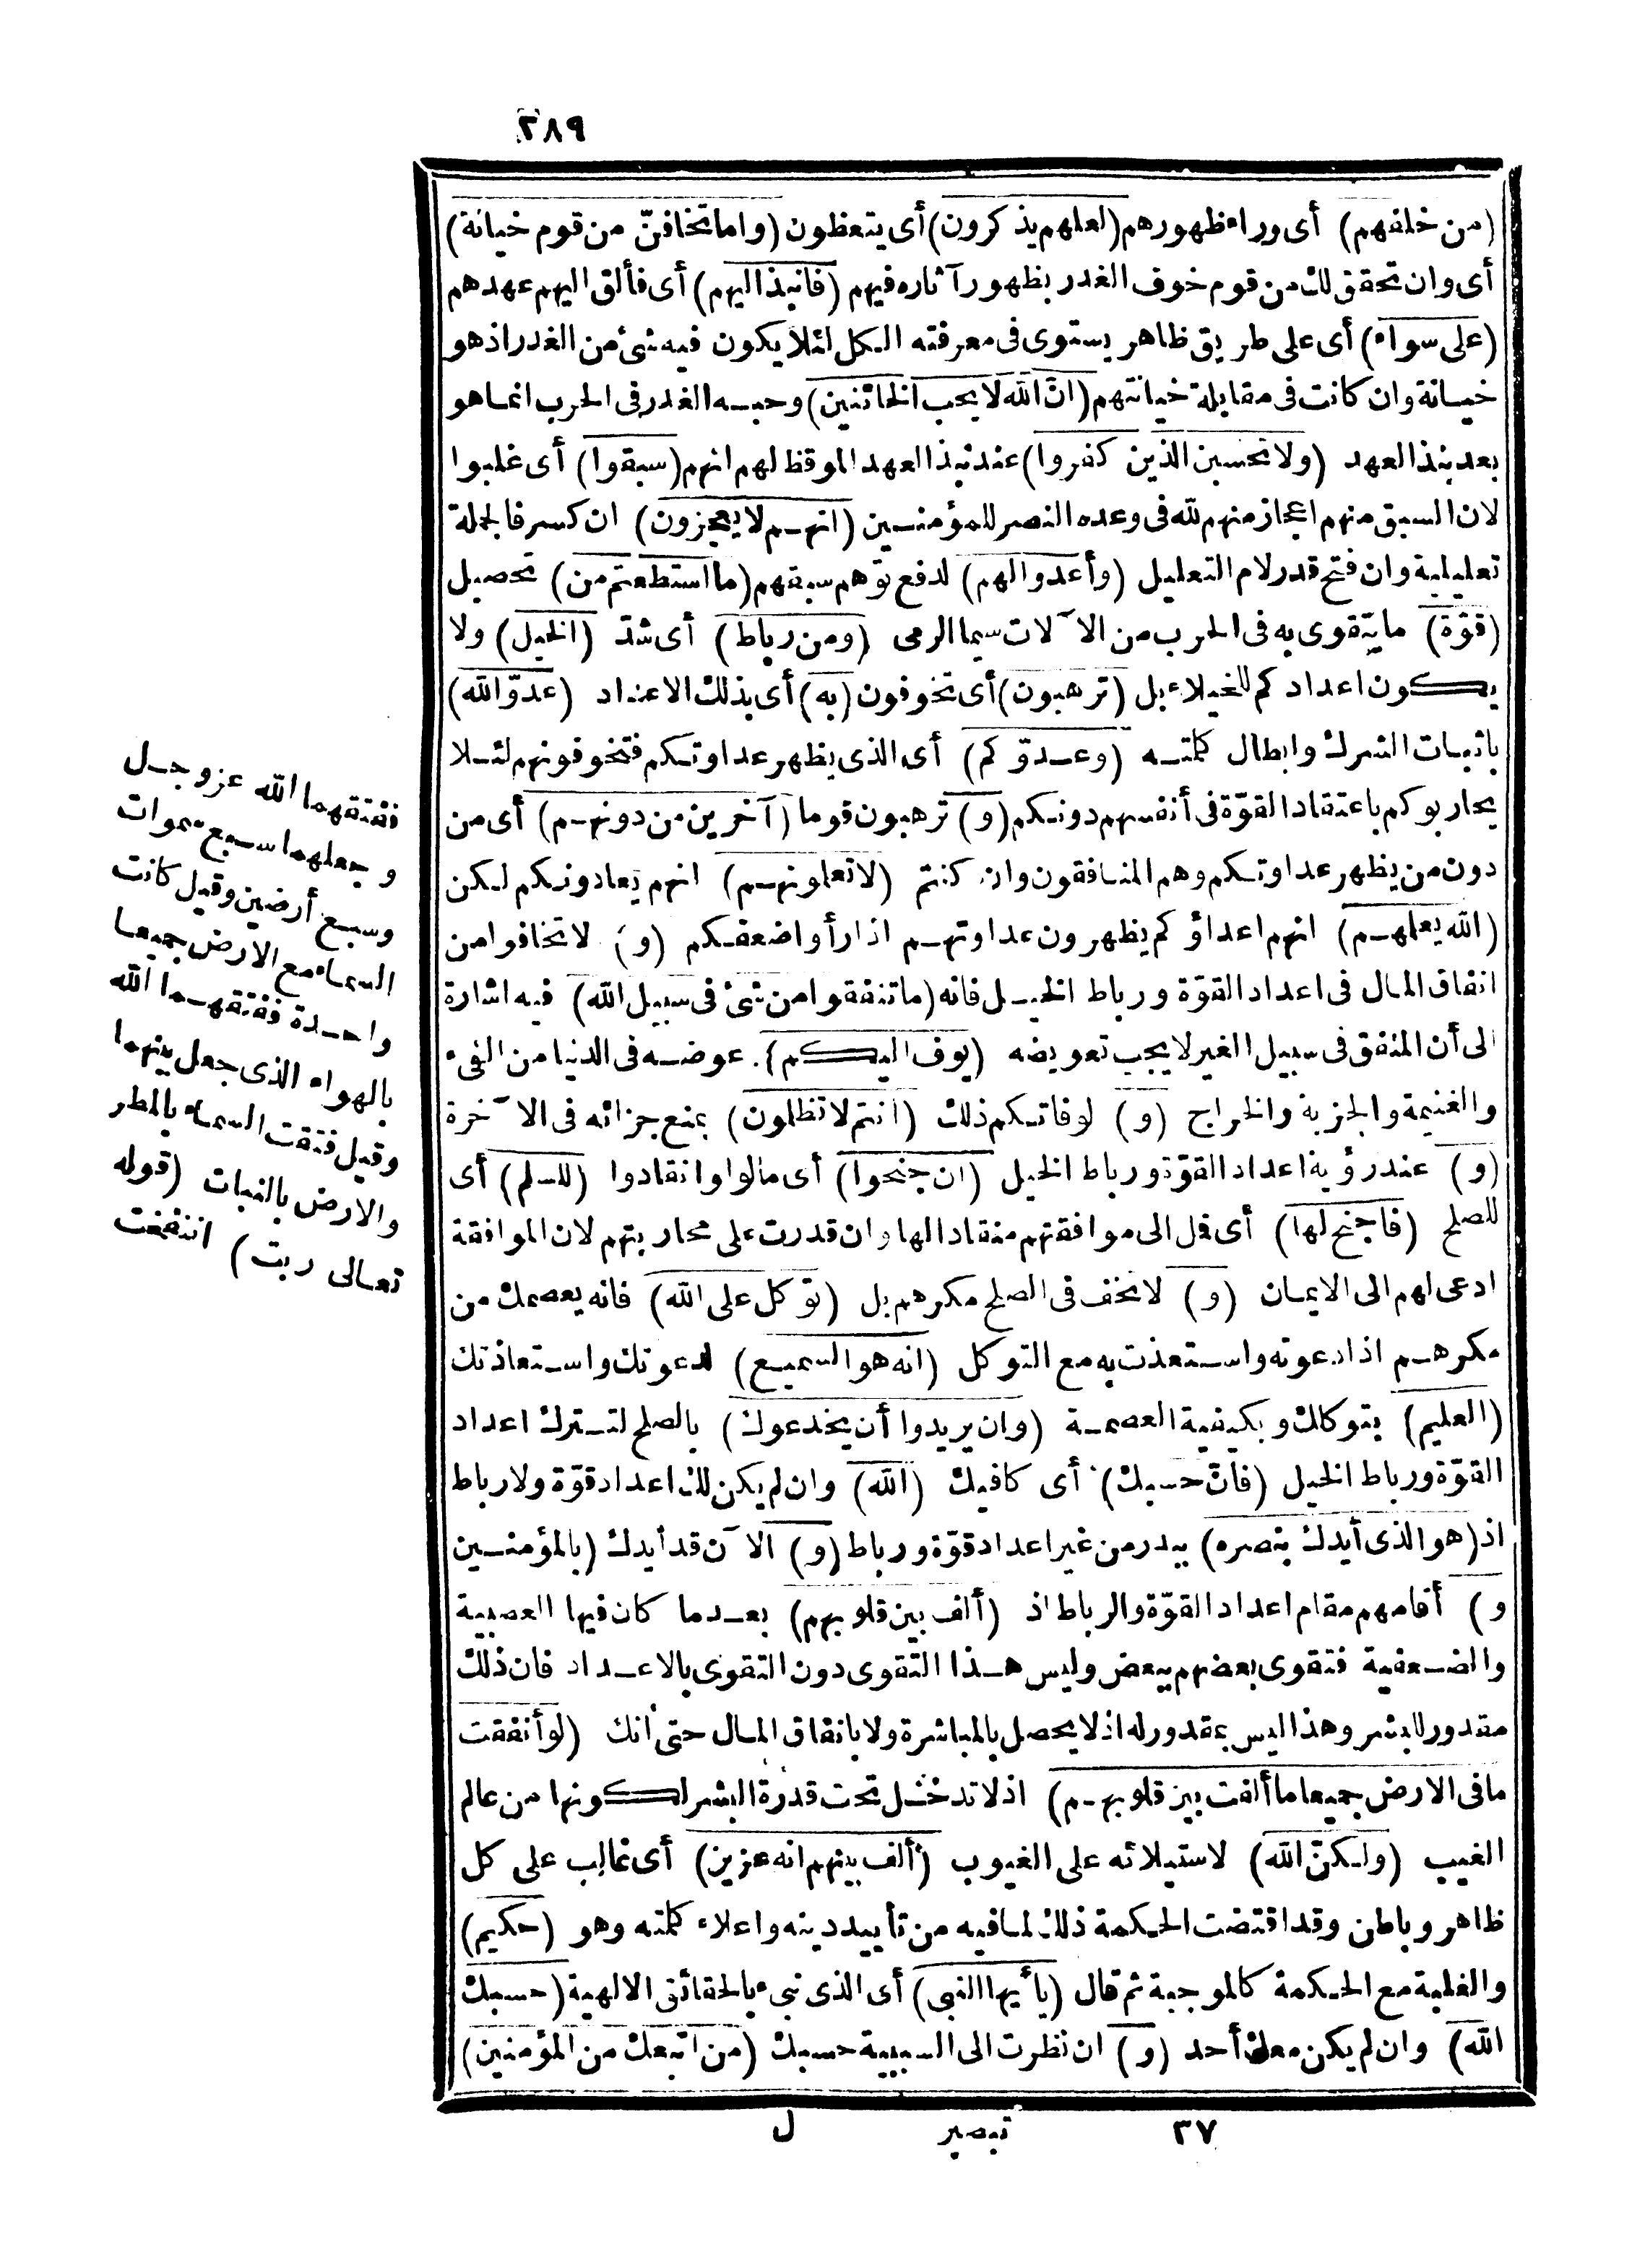 ٢٨٩
(من خلفهم) أى وراء ظهورهم (لعلهم يذكرون) أى يتعظون (واما تخافنّ من قوم خيانة)
أى وان تحقق لك من قوم خوف الغدر بظهور آثاره فيهم (فانبذ اليهم) أى فألق اليهم عهدهم
(على سواء) أى على طريق ظاهر يستوى فى معرفته الكل لئلا يكون فيه شئ من الغدر اذ هو
خيانة وان كانت فى مقابلة خيانتهم (انّ الله لا يحب الخائنين) وحبه الغدر فى الحرب انما هو
بعد نبذ العهد (ولا تحسبن الذين كفروا) عند نبذ العهد الموقظ لهم انهم (سبقوا) أى غلبوا
لان السبق منهم اعجاز منهم لله فى وعده النصر للمؤمنين (انهم لا يعجزون) ان كسر فالجملة
تعليلية وان فتح قدر لام التعليل (وأعدوا لهم) لدفع توهم سبقهم (ما استطعتم من) تحصيل
(قوّة) ما يتقوى به فى الحرب من الآلات سيما الرمى (ومن رباط) أى شدّ (الخيل) ولا
يكون اعدادكم للخيلاء بل (ترهبون) أى تخوفون (به) أى بذلك الاعداد (عدوّ الله)
باثبات الشرك وابطال كلمته (وعدوّكم) أى الذى يظهر عداوتكم فتخوفونهم لئلا
يحاربوكم باعتقاد القوّة فى أنفسهم دونكم (و) ترهبون قوما (آخرين من دونهم) أى من
دون من يظهر عداوتكم وهم المنافقون وان كنتم (لا تعلمونهم) انهم يعادونكم لكن
(الله يعلمهم) انهم اعداؤكم يظهرون عداوتهم اذا رأوا ضعفكم (و) لا تخافوا من
انفاق المال فى اعداد القوّة ورباط الخيل فانه (ما تنفقوا من شئ فى سبيل الله) فيه اشارة
الى أن المنفق فى سبيل الغير لا يجب تعويضه (يوف اليكم) عوضه فى الدنيا من الفىء
والغنيمة والجزية والخراج (و) لو فاتكم ذلك (أنتم لا تظلمون) بمنع جزائه فى الآخرة
(و) عند رؤية اعداد القوّة ورباط الخيل (ان جنحوا) أى مالوا وانقادوا (للسلم) أى
للصلح (فاجنح لها) أى فمل الى موافقتهم منقادا لها وان قدرت على محاربتهم لان الموافقة
ادعى لهم الى الايمان (و) لا تخف فى الصلح مكرهم بل (توكل على الله) فانه يعصمك من
مكرهم اذا دعوته واستعذت به مع التوكل (انه هو السميع) لدعوتك واستعاذتك
(العليم) بتوكلك وبكيفية العصمة (وان يريدوا أن يخدعوك) بالصلح لتترك اعداد
القوّة ورباط الخيل (فانّ حسبك) أى كافيك (الله) وان لم يكن لك اعداد قوّة ولا رباط
اذ (هو الذى أيدك بنصره) ببدر من غير اعداد قوّة ورباط (و) الآن قد أيدك (بالمؤمنين
و) أقامهم مقام اعداد القوّة والرباط اذ (ألف بين قلوبهم) بعدما كان فيها العصبية
والضعفية فتقوى بعضهم ببعض وليس هذا التقوى دون التقوى بالاعداد فان ذلك
مقدور للبشر وهذا ليس بمقدور له اذ لا يحصل بالمباشرة ولا بانفاق المال حتى أنك (لو أنفقت
ما فى الارض جميعا ما ألفت بين قلوبهم) اذ لا تدخل تحت قدرة البشر لكونها من عالم
الغيب (ولكنّ الله) لاستيلائه على الغيوب (ألف بينهم انه عزيز) أى غالب على كل
ظاهر وباطن وقد اقتضت الحكمة ذلك لما فيه من تأييد دينه واعلاء كلمته وهو (حكيم)
والغلبة مع الحكمة كالموجبة ثم قال (يا أيها النبى) أى الذى نبىء بالحقائق الالهية (حسبك
الله) وان لم يكن معك أحد (و) ان نظرت الى السببية حسبك (من اتبعك من المؤمنين)
ففتقهما الله عز وجل
وجعلهما سبع سموات
وسبع أرضين وقيل كانت
السماء مع الارض جميعا
واحدة ففتقهما الله
بالهواء الذى جعل بينهما
وقيل فتقت السماء بالمطر
والارض بالنبات (قوله
تعالى ربت) انتفخت
٣٧ تبصير ل